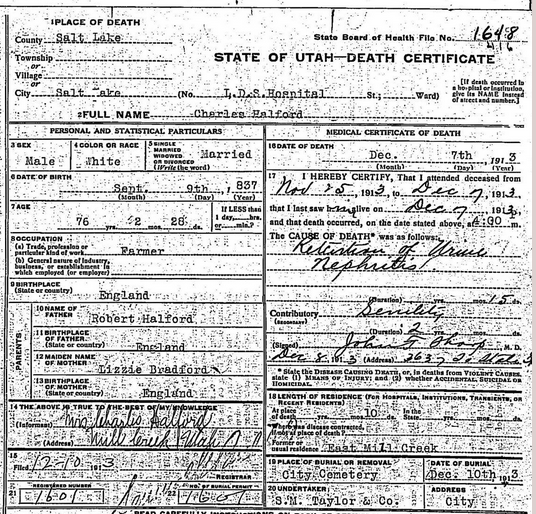 1 PLACE OF DEATH
County Salt Lake
State Board of Health File No. 1648
416
Township
or
Village
or
City Salt Lake (No. L.D.S. Hospital St.; Ward)
STATE OF UTAH—DEATH CERTIFICATE
[If death occurred in a hospital or institution, give its NAME instead of street and number.]
2 FULL NAME Charles Halford
PERSONAL AND STATISTICAL PARTICULARS
3 SEX Male
4 COLOR OR RACE White
5 SINGLE MARRIED WIDOWED OR DIVORCED (Write the word) Married
6 DATE OF BIRTH
Sept. 9th, 1837
(Month) (Day) (Year)
7 AGE
76 yrs. 2 mos. 28 ds.
If LESS than 1 day, hrs. or min.
8 OCCUPATION
(a) Trade, profession or particular kind of work Farmer
(b) General nature of industry, business, or establishment in which employed (or employer)
9 BIRTHPLACE
(State or country) England
PARENTS
10 NAME OF FATHER Robert Halford
11 BIRTHPLACE OF FATHER (State or country) England
12 MAIDEN NAME OF MOTHER Lizzie Bradford
13 BIRTHPLACE OF MOTHER (State or country) England
14 THE ABOVE IS TRUE TO THE BEST OF MY KNOWLEDGE
(Informant) Mrs Charles Halford
(Address) Mill Creek Utah
15
Filed 12-10 1913
REGISTRAR
REGISTERED NUMBER
21 1601
NO. OF BURIAL PERMIT
22
MEDICAL CERTIFICATE OF DEATH
16 DATE OF DEATH
Dec. 7th, 1913
(Month) (Day) (Year)
17 I HEREBY CERTIFY, That I attended deceased from
Nov 25 1913, to Dec 7, 1913
that I last saw him alive on Dec 7, 1913,
and that death occurred, on the date stated above, at 4:00 m.
The CAUSE OF DEATH* was as follows:
Retention of Urine
Nephritis
(Duration) yrs. mos. 15 ds.
Contributory Senility
(SECONDARY)
(Duration) 2 yrs. mos. ds.
(Signed) M. D.
Dec 8, 1913 (Address)
* State the DISEASE CAUSING DEATH, or, in deaths from VIOLENT CAUSES, state (1) MEANS OF INJURY; and (2) whether ACCIDENTAL, SUICIDAL or HOMICIDAL.
18 LENGTH OF RESIDENCE (FOR HOSPITALS, INSTITUTIONS, TRANSIENTS, OR RECENT RESIDENTS)
At place of death yrs. mos. 10 ds. In the State yrs. mos. ds.
Where was disease contracted, if not at place of death?
Former or usual residence East Mill Creek
19 PLACE OF BURIAL OR REMOVAL
City Cemetery
DATE OF BURIAL
Dec. 10th, 1913
20 UNDERTAKER
S.M. Taylor & Co.
ADDRESS
City